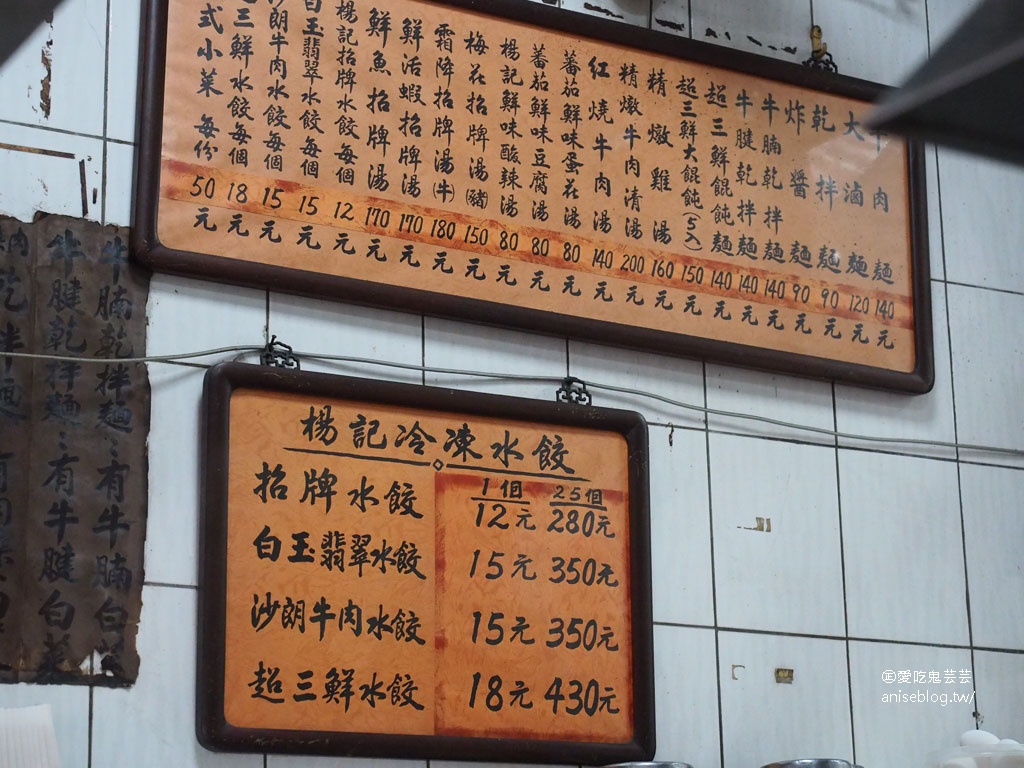 牛肉麵 140元
大滷麵 120元
乾拌麵 90元
炸醬麵 90元
牛腩乾拌麵 140元
牛腱乾拌麵 140元
超三鮮餛飩麵 140元
超三鮮大餛飩(5入) 150元
精燉雞湯 160元
精燉牛肉清湯 200元
紅燒牛肉湯 140元
蕃茄鮮味蛋花湯 80元
蕃茄鮮味豆腐湯 80元
楊記鮮味酸辣湯 80元
梅花招牌湯(豬) 150元
霜降招牌湯(牛) 180元
鮮活蝦招牌湯 170元
鮮魚招牌湯 170元
楊記招牌水餃每個 12元
白玉翡翠水餃每個 15元
沙朗牛肉水餃每個 15元
三鮮水餃每個 18元
式小菜每份 50元
楊記冷凍水餃
1個 25個
招牌水餃 12元 280元
白玉翡翠水餃 15元 350元
沙朗牛肉水餃 15元 350元
超三鮮水餃 18元 430元
牛腩乾拌麵:有牛腩白菜
牛腱乾拌麵:有牛腱白菜
乾拌麵
愛吃鬼芸芸
aniseblog.tw/